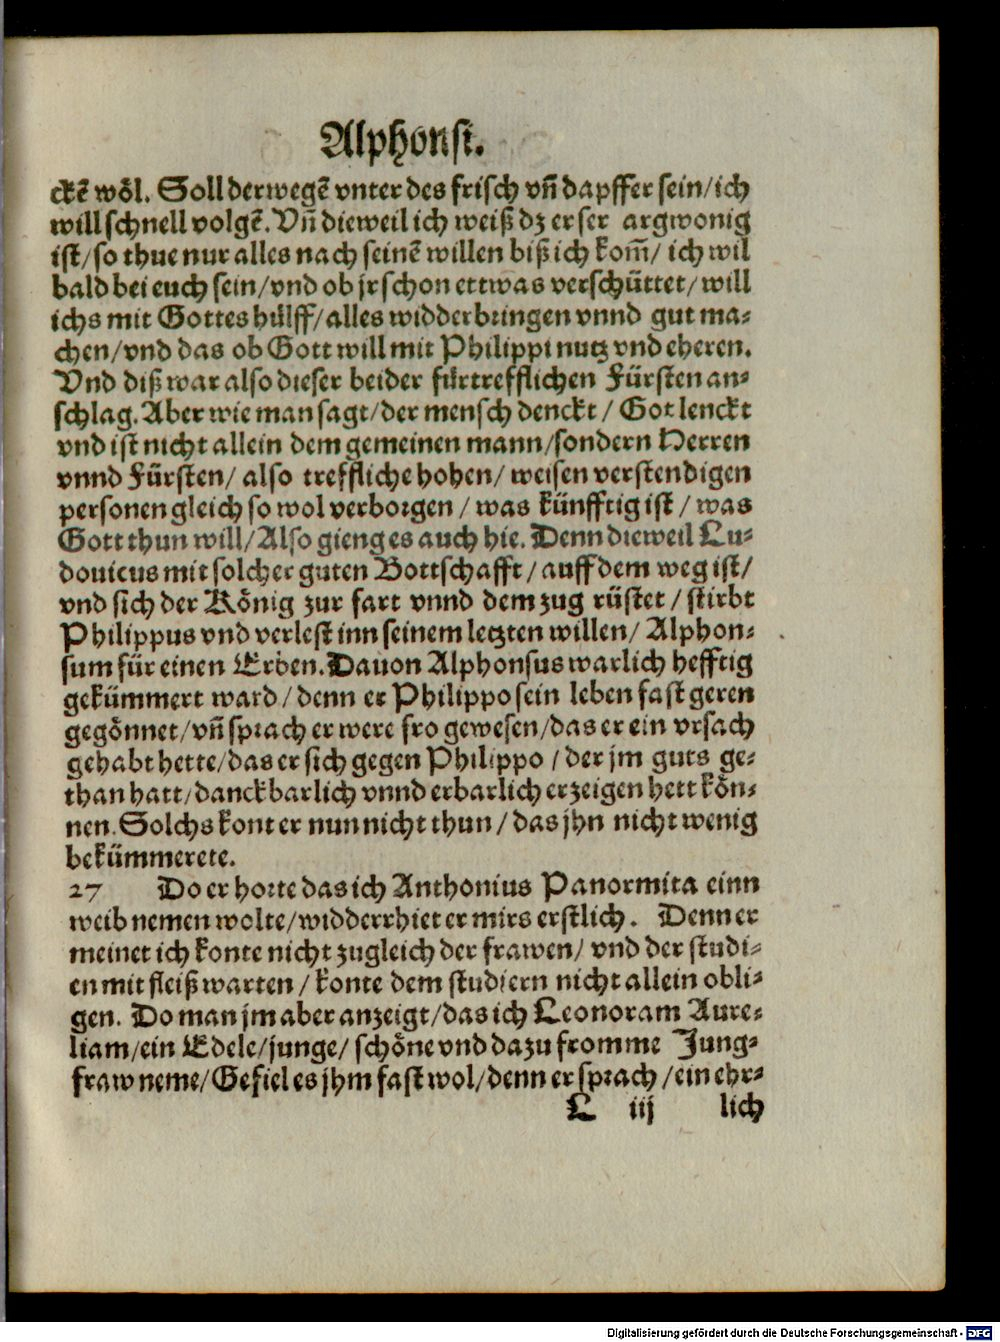 Alphonsi.
ckẽ wöl. Soll derwegẽ vnter des frisch vñ dapffer sein/ich
will schnell volgẽ. Vñ dieweil ich weiß dz er ser argwonig
ist/so thue nur alles nach seinẽ willen biß ich kom̃/ ich wil
bald bei euch sein/vnd ob jr schon ettwas verschüttet/ will
ichs mit Gottes hülff/alles widderbringen vnnd gut ma⸗
chen/vnd das ob Gott will mit Philippi nutz vnd eheren.
Vnd diß war also dieser beider fürtrefflichen Fürsten an⸗
schlag. Aber wie man sagt/der mensch denckt / Got lenckt
vnd ist nicht allein dem gemeinen mann/sondern Herren
vnnd Fürsten/ also treffliche hohen/ weisen verstendigen
personen gleich so wol verborgen / was künfftig ist / was
Gott thun will/Also gieng es auch hie. Denn dieweil Lu⸗
douicus mit solcher guten Bottschafft / auff dem weg ist/
vnd sich der König zur fart vnnd dem zug rüstet / stirbt
Philippus vnd verlest inn seinem letzten willen/ Alphon⸗
sum für einen Erben. Dauon Alphonsus warlich hefftig
gekümmert ward / denn er Philippo sein leben fast geren
gegönnet/vñ sprach er were fro gewesen/das er ein vrsach
gehabt hette/das er sich gegen Philippo / der jm guts ge⸗
than hatt/danckbarlich vnnd erbarlich erzeigen hett kön⸗
nen. Solchs kont er nun nicht thun / das jhn nicht wenig
bekümmerete.
27 Do er horte das ich Anthonius Panormita einn
weib nemen wolte/widderrhiet er mirs erstlich. Denn er
meinet ich konte nicht zugleich der frawen/ vnd der studi⸗
en mit fleiß warten / konte dem studjern nicht allein obli⸗
gen. Do man jm aber anzeigt/das ich Leonoram Aure⸗
liam/ein Edele/junge/ schöne vnd dazu fromme Jung⸗
fraw neme/Gefiel es jhm fast wol/denn er sprach /ein ehr⸗
L iij lich
Digitalisierung gefördert durch die Deutsche Forschungsgemeinschaft - DFG